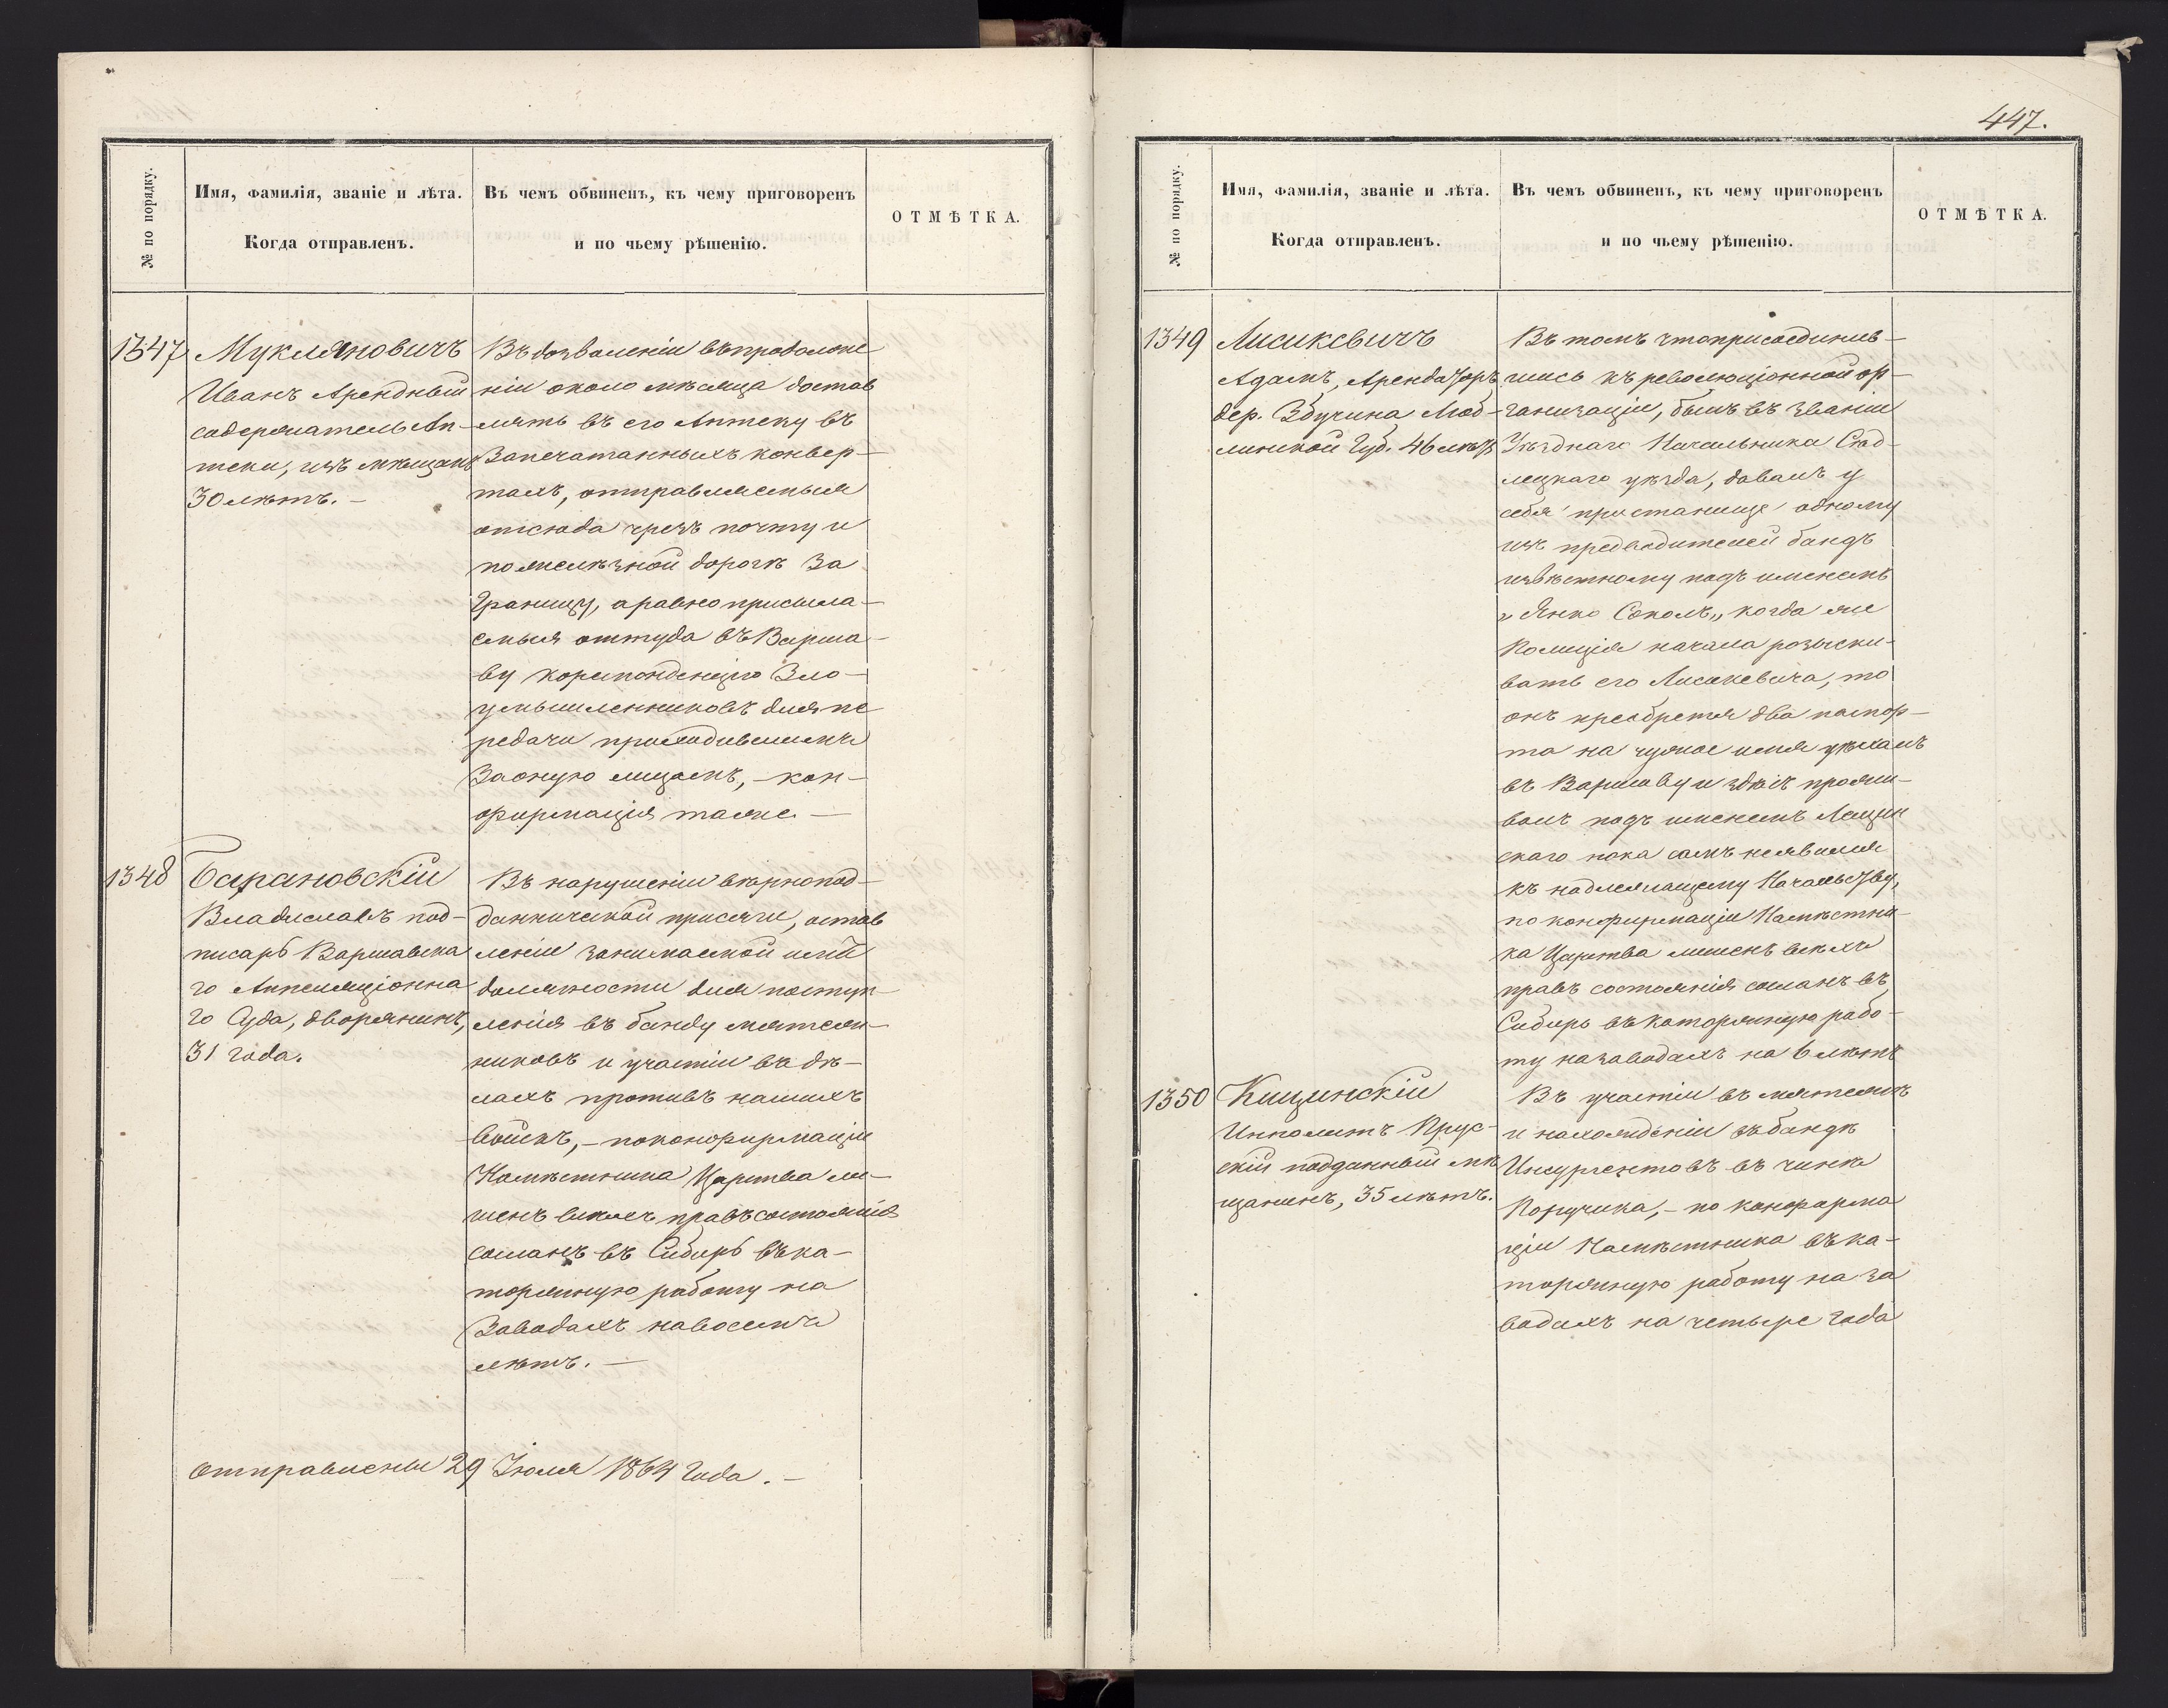 № по порядку.
Имя, фамилія, званіе и лѣта.
Когда отправленъ.
Въ чемъ обвиненъ, къ чему приговоренъ
и по чьему рѣшенію.
ОТМѢТКА.
1347
Мукляновичъ
Иванъ Арендный
содержатель Ап-
теки, изъ мѣщанъ
30 лѣтъ. –
Въ дозволеніи въ продолже
ніи около мѣсяца достав
лять въ его Аптеку въ
Запечатанныхъ конвер-
тахъ, отправляемыя
отсюда чрезъ почту и
по желѣзной дорогѣ За
Границу, а равно присыла-
емыя оттуда въ Варша-
ву кореспонденцію Зло-
умышленниковъ для пе
редачи приходившимъ
За оную лицамъ, – кон-
фирмація таже. –
1348
Барановскій
Владиславъ под-
писарь Варшавска
го Аппеляціонна
го Суда, дворянинъ,
31 года.
Въ нарушеніи вѣрнопод-
даннической присяги, остав
леніи занимаемой имъ
должности для поступ-
ленія въ банду мятеж-
никовъ и участіи въ дѣ-
лахъ противъ нашихъ
войскъ, – по конфирмаціи
Намѣстника Царства ли-
шенъ всѣхъ правъ состоянія
сосланъ въ Сибирь въ ка-
торжную работу на
Заводахъ на восемь
лѣтъ. –
Отправлены 29 Іюля 1864 года. –
447.
№ по порядку.
Имя, фамилія, званіе и лѣта.
Когда отправленъ.
Въ чемъ обвиненъ, къ чему приговоренъ
и по чьему рѣшенію.
ОТМѢТКА.
1349
Лисикевичъ
Адамъ, Арендаторъ
дер. Збучина Люб-
линской Губ. 46 лѣтъ
Въ томъ что присоединив-
шись къ революціонной ор-
ганизаціи, былъ въ званіи
Уѣзднаго Начальника Сѣд-
лецкаго уѣзда, давалъ у
себя пристанище одному
изъ предводителей бандъ
извѣстному подъ именемъ
„Янко Соколъ„ когда же
Полиція начала розыски-
вать его Лисикевича, то
онъ преобретя два паспор-
та на чужое имя уѣхалъ
въ Варшаву и здѣсь прожи-
валъ подъ именемъ Лещин
скаго пока самъ не явился
къ надлежащему Начальству,
по конфирмаціи Намѣстни-
ка Царства лишенъ всѣхъ
правъ состоянія сосланъ въ
Сибирь въ каторжную рабо-
ту на заводахъ на 6 лѣтъ
1350
Кищинскій
Ипполитъ Прус-
скій подданный мѣ
щанинъ, 35 лѣтъ.
Въ участіи въ мятежѣ
и нахожденіи въ бандѣ
Инсургентовъ въ чинѣ
Поручика, – по конфирма
ціи Намѣстника въ ка-
торжную работу на за
водахъ на четыре года